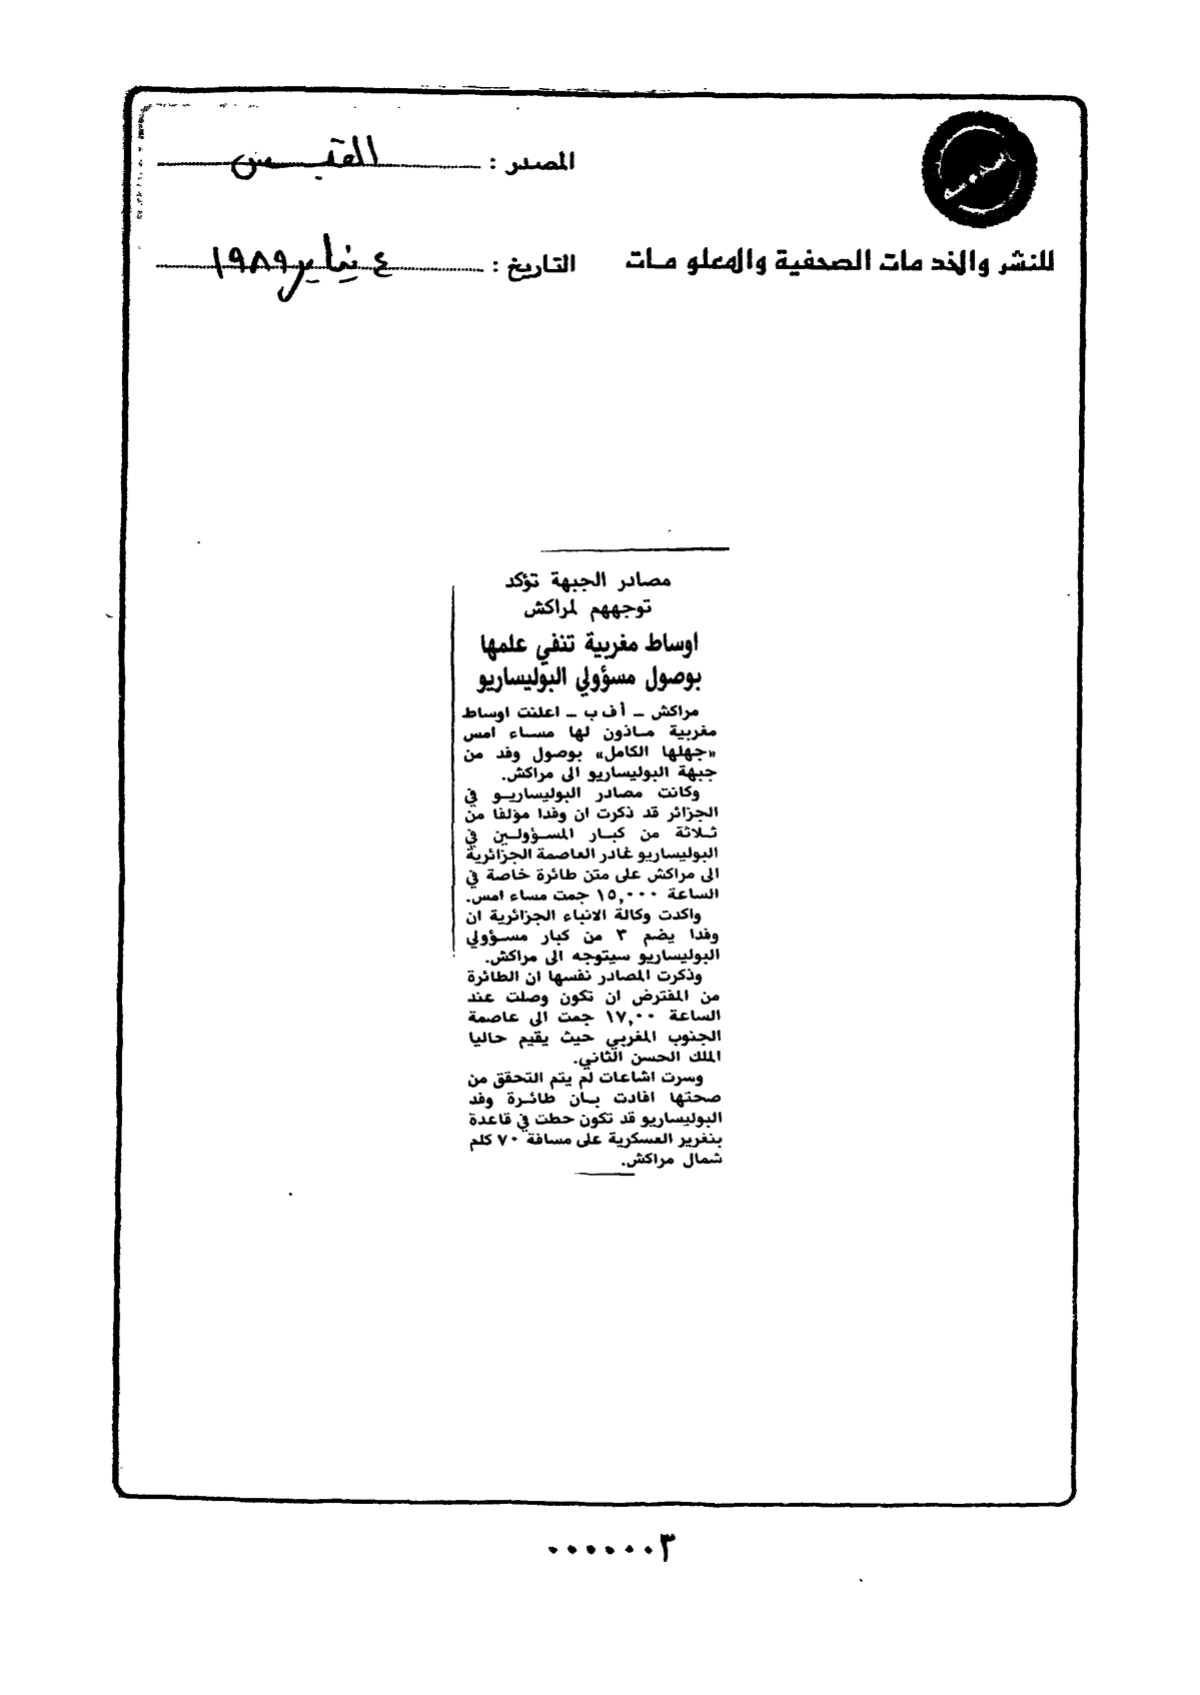 المصدر : القبس
للنشر والخدمات الصحفية والمعلومات
التاريخ : ٤ يناير ١٩٨٩
مصادر الجبهة تؤكد
توجههم لمراكش
اوساط مغربية تنفي علمها
بوصول مسؤولي البوليساريو
مراكش ــ أ ف ب ــ اعلنت اوساط
مغربية مـاذون لها مسـاء امس
«جهلها الكامل» بوصول وفد من
جبهة البوليساريو الى مراكش.
وكانت مصادر البوليساريـو في
الجزائر قد ذكرت ان وفدا مؤلفا من
ثـلاثة من كبـار المسـؤولـين في
البوليساريو غادر العاصمة الجزائرية
الى مراكش على متن طائرة خاصة في
الساعة ١٥,٠٠٠ جمت مساء امس.
واكدت وكالة الانباء الجزائرية ان
وفدا يضم ٣ من كبار مسـؤولي
البوليساريو سيتوجه الى مراكش.
وذكرت المصادر نفسها ان الطائرة
من المفترض ان تكون وصلت عند
الساعة ١٧,٠٠ جمت الى عاصمة
الجنوب المغربي حيث يقيم حاليا
الملك الحسن الثاني.
وسرت اشاعات لم يتم التحقق من
صحتها افادت بـان طائـرة وفد
البوليساريو قد تكون حطت في قاعدة
بنغرير العسكرية على مسافة ٧٠ كلم
شمال مراكش.
٠٠٠٠٠٠٣